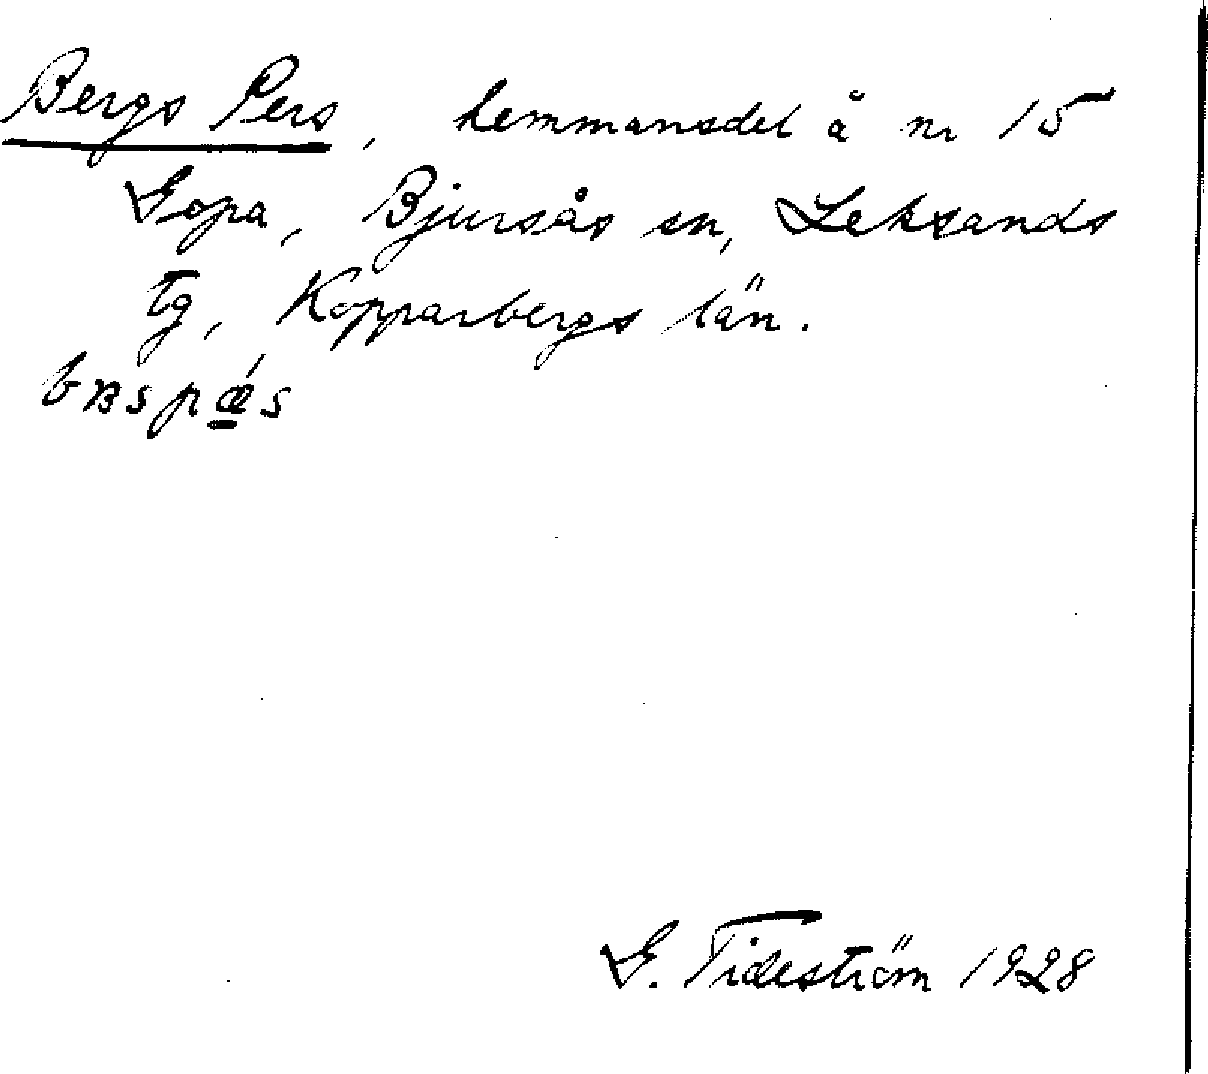 Bergs Pers, hemmansdel å nr 15
Gopa, Bjursås sn, Leksands
tg, Kopparbergs län.
G. Tideström 1928